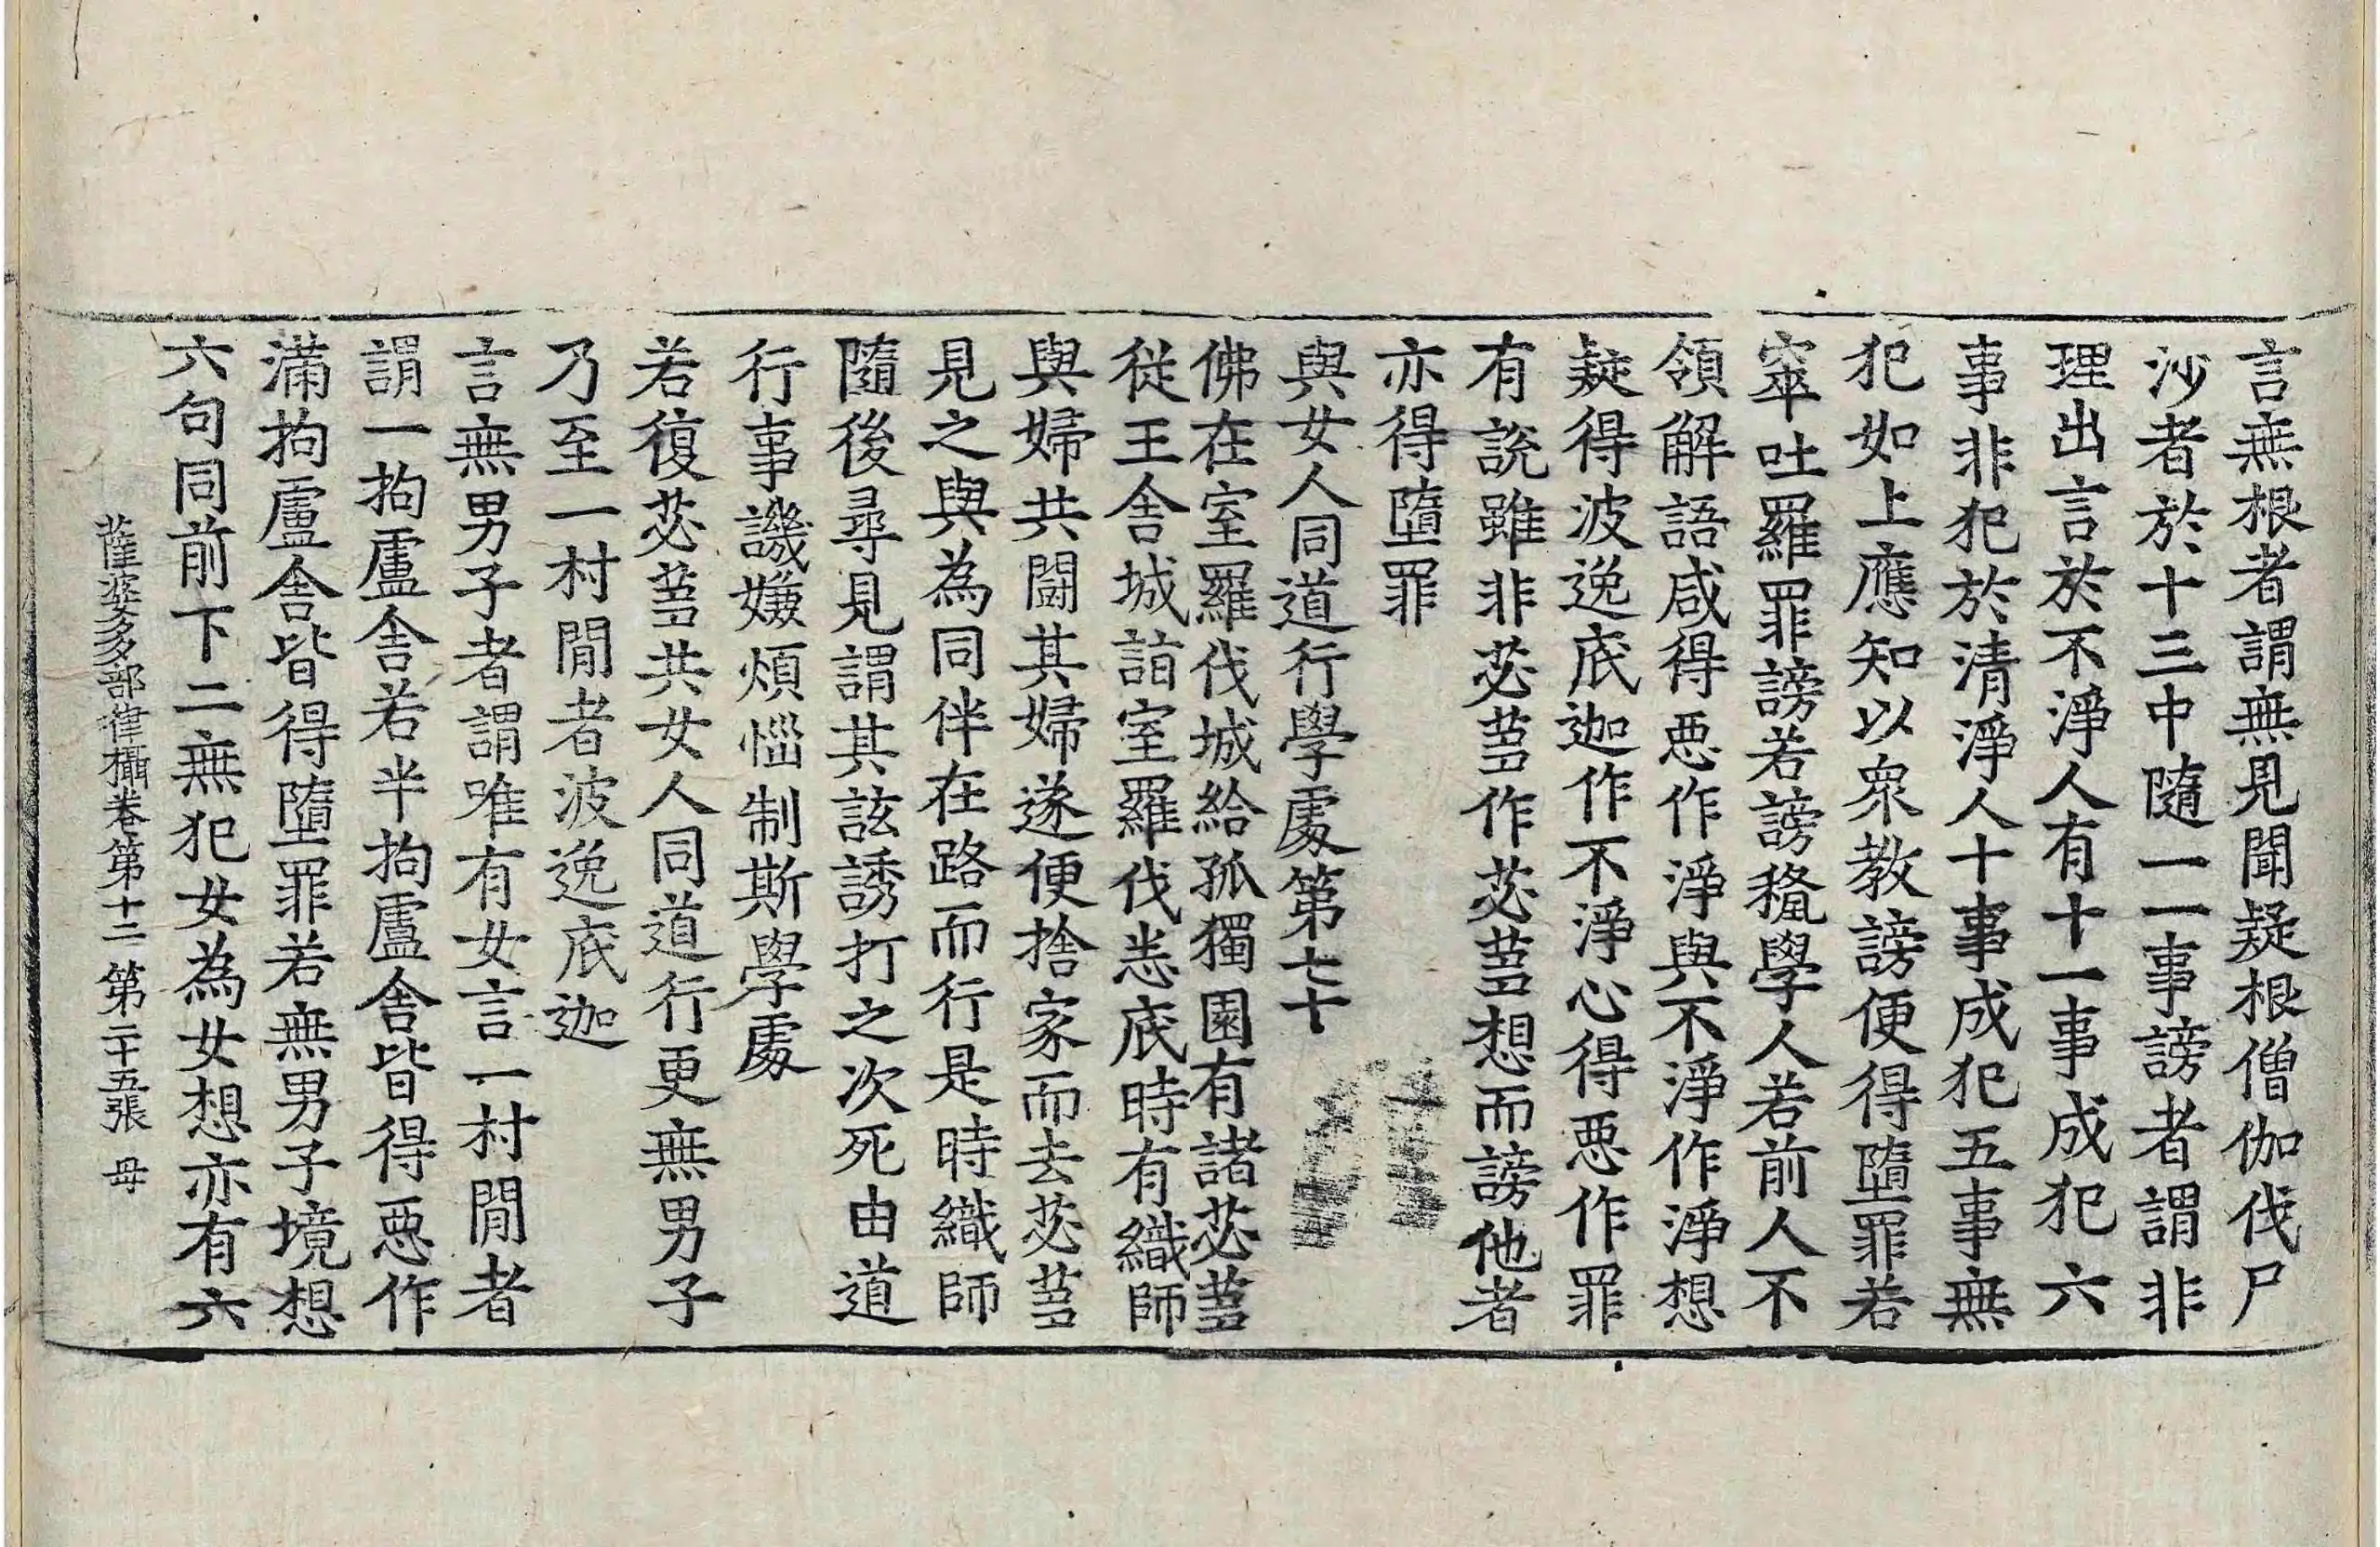 言無根者謂無見聞疑根僧伽伐尸
沙者於十三中隨一一事謗者謂非
理出言於不淨人有十一事成犯六
事非犯於清淨人十事成犯五事無
犯如上應知以衆教謗便得墮罪若
窣吐羅罪謗若謗授學人若前人不
領解語咸得惡作淨與不淨作淨想
疑得波逸底迦作不淨心得惡作罪
有說雖非苾蒭作苾蒭想而謗他者
亦得墮罪
與女人同道行學處第七十
佛在室羅伐城給孤獨園有諸苾蒭
從王舍城詣室羅伐悉底時有織師
與婦共鬪其婦遂便捨家而去苾蒭
見之與為同伴在路而行是時織師
隨後尋見謂其該誘打之次死由道
行事譏嫌煩惱制斯學處
若復苾蒭共女人同道行更無男子
乃至一村閒者波逸底迦
言無男子者謂唯有女言一村閒者
謂一拘盧舍若半拘盧舍皆得惡作
滿拘盧舍皆得墮罪若無男子境想
六句同前下二無犯女為女想亦有六
薩婆多部律攝卷第十二 第二十五張 毋